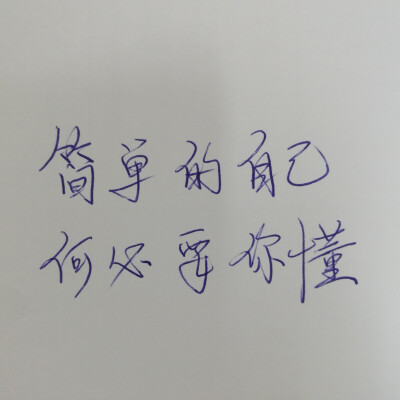 简单的自己
何必要你懂